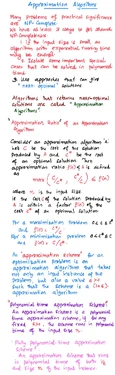 Approximation Algorithms
Many problems of practical significance
are NP-Complete
We have at least 3 ways to get around
NP-Completeness
1. If the input size is small, an
algorithm with exponential running time
may be enough
2. Isolate some important special
cases that can be solved in polynomial
time
3. Use approaches that can give
near-optimal solutions
Algorithms that returns near-optimal
solutions are called "Approximation
Algorithms"
"Approximation Ratio" of an Approximation
Algorithm
Consider an approximation algorithm A
Let C be the cost of the solution
produced by A and C* be the cost
of an optimal solution. The
approximation ratio f(n) of A is defined
as
max ( C/C* , C*/C ) ≤ f(n)
where n is the input size
if the cost C of the solution produced by
A is within a factor f(n) of the
cost C* of an optimal solution
For a maximization problem 0 < C ≤ C*
and f(n) = C*/C
For a minimization problem 0 < C* ≤ C
and f(n) = C/C*
An "approximation scheme" for an
optimization problem is an
approximation algorithm that takes
not only an input instance of the
problem, but also a value ε>0
such that the scheme is a (1+ε)-
approximation algorithm
"Polynomial time approximation scheme"
An approximation scheme is a polynomial
time approximation scheme if for any
fixed ε>0, the scheme runs in polynomial
time of the input size n.
"Fully polynomial time approximation
scheme"
An approximation scheme that runs
in polynomial time of both 1/ε
and size n of the input instance.